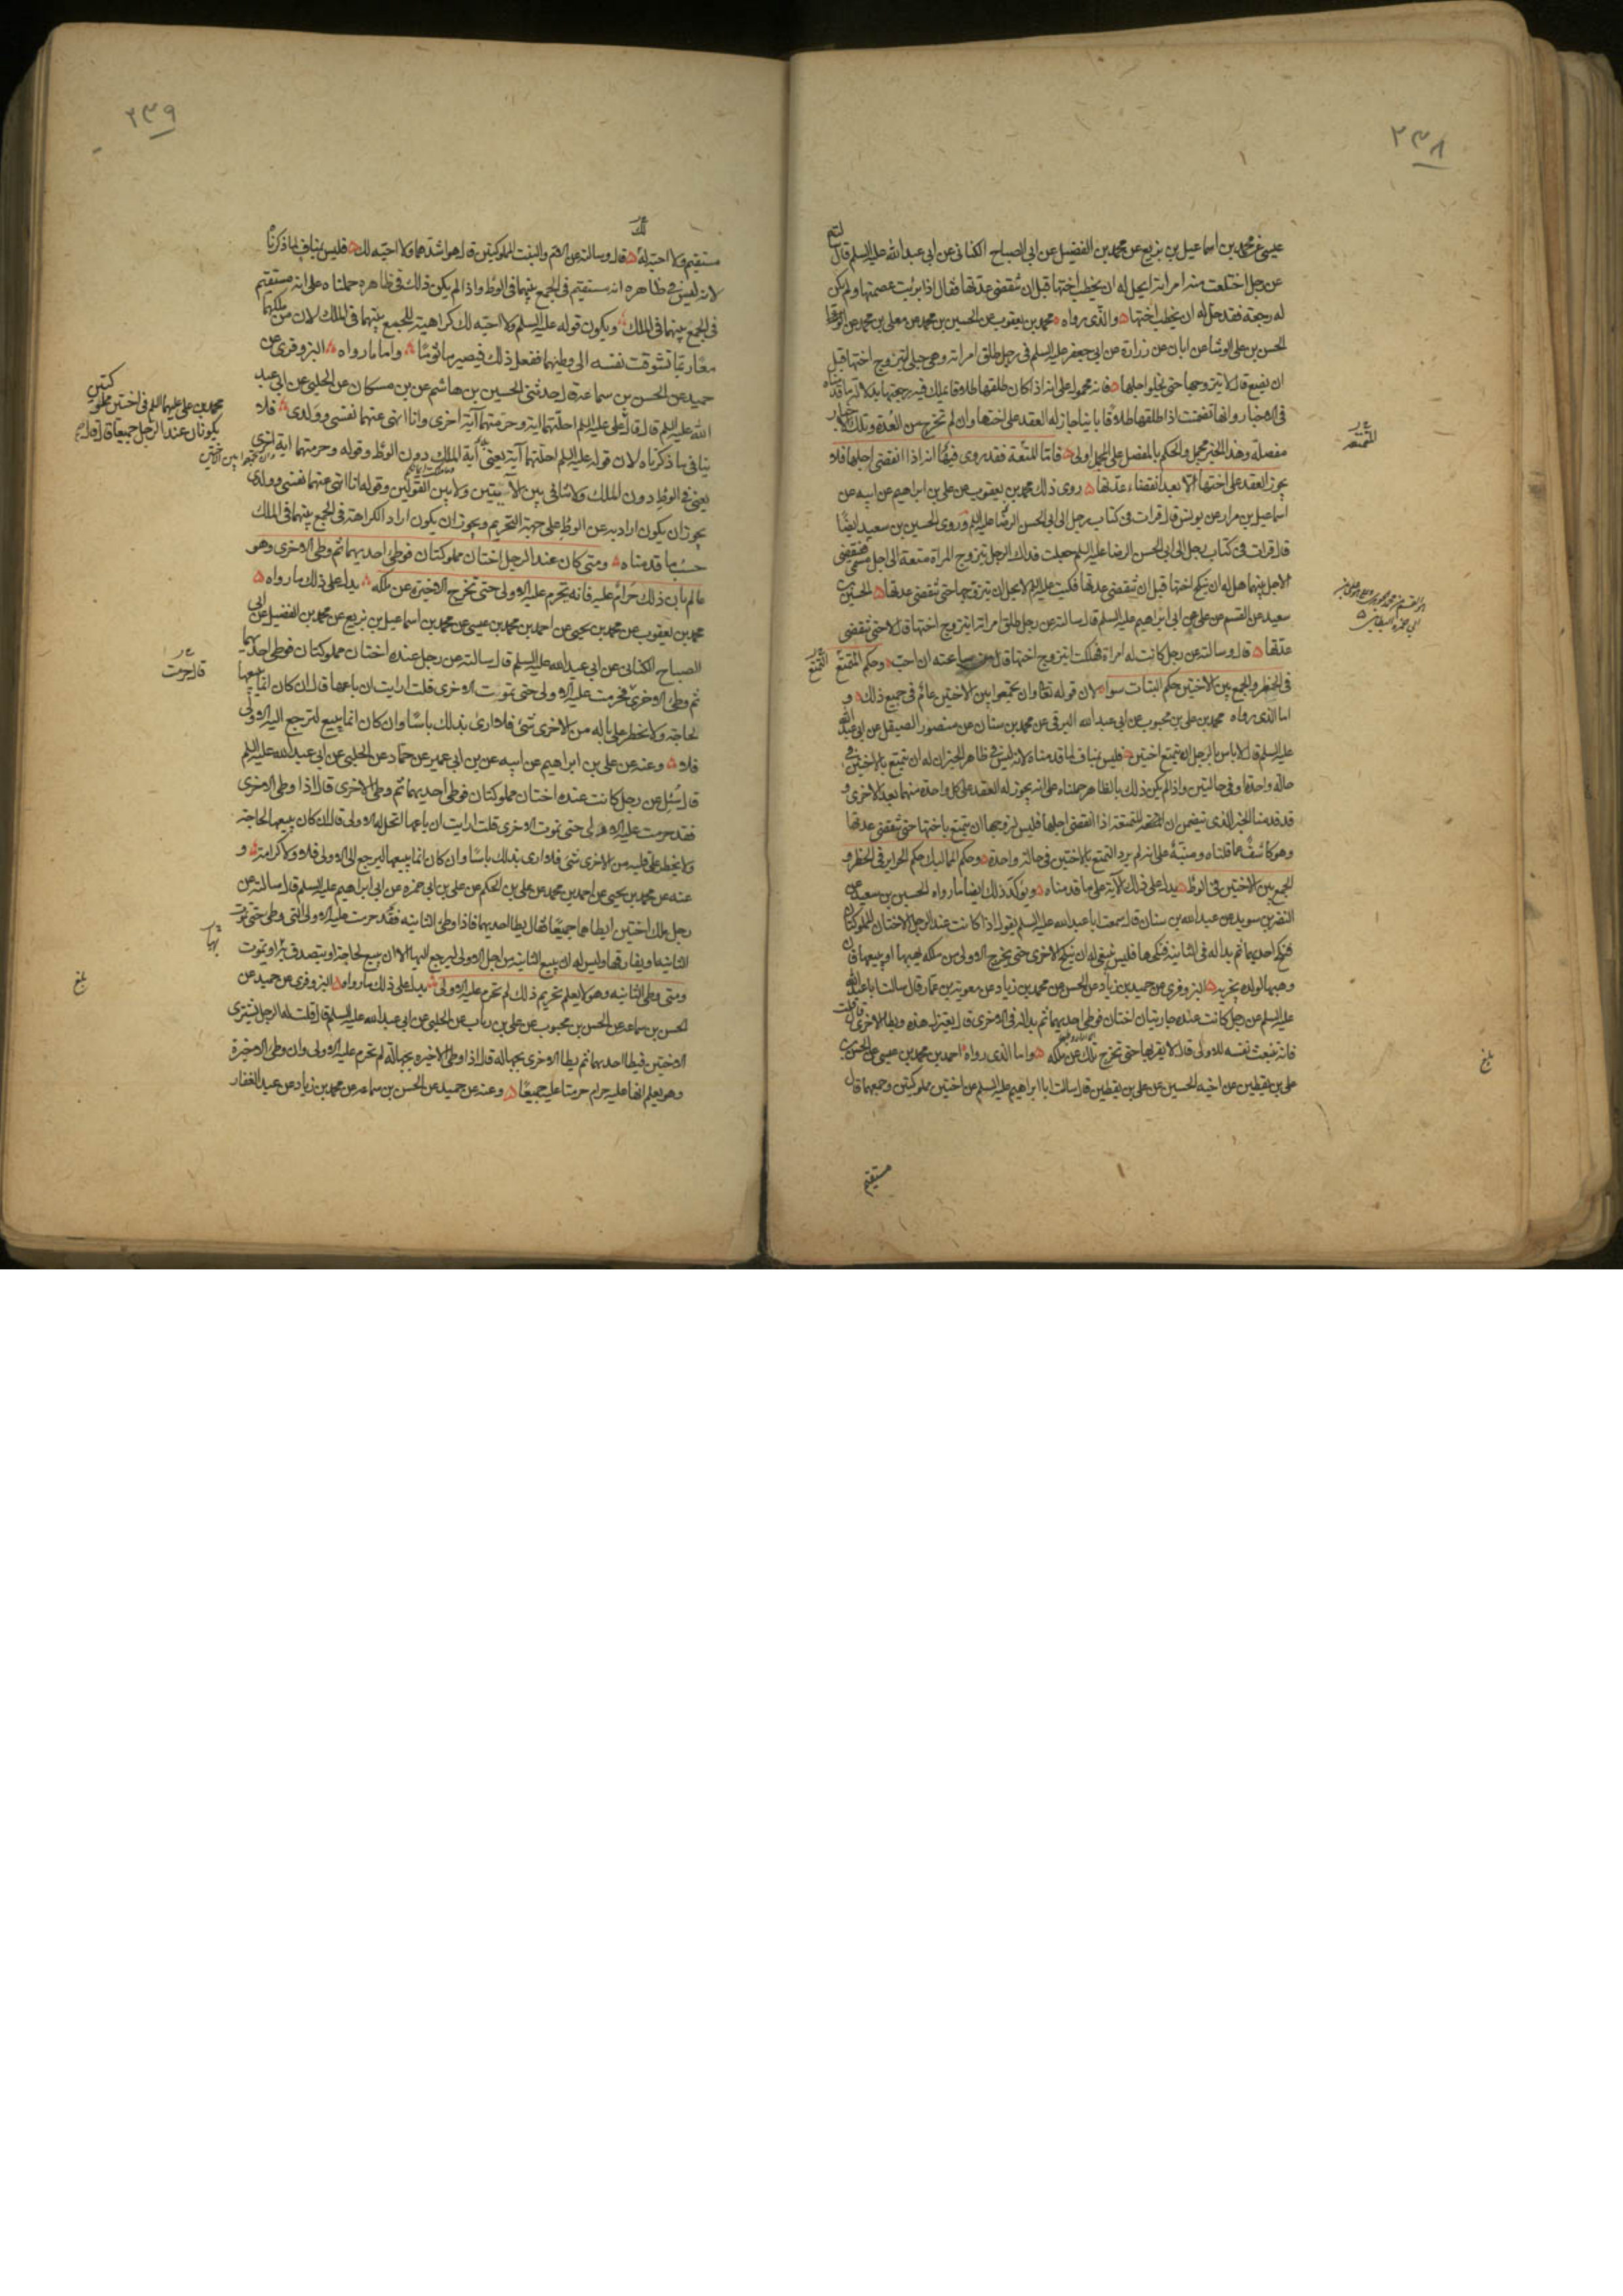 ٢٣٨
عيسى عن محمد بن اسماعيل بن بزيع عن محمد بن الفضيل عن ابى الصباح الكنانى عن ابى عبدالله عليه السلم قال
عن رجل اختلعت منه امراته ايحل له ان يخطب اختها قبل ان تنقضى عدتها فقال اذا برئت عصمتها ولم يكن
له رجعة فقد حل له ان يخطب اختها والذى رواه محمد بن يعقوب عن الحسين بن محمد عن معلى بن محمد عن
الحسن بن على الوشا عن ابان عن زرارة عن ابى جعفر عليه السلم فى رجل طلق امراته وهى حبلى ايتزوج اختها قبل
ان تضع قال لا يتزوجها حتى يخلو اجلها فانه محمول على انه اذا كان طلقها طلاقا يملك فيه رجعتها بدلالة ما قدمناه
فى الاخبار وانها تضمنت اذا طلقها طلاقا باينا جاز له العقد على اختها وان لم تخرج من العدة وتلك
مفصلة وهذا الخبر مجمل والحكم بالمفصل على المجمل اولى فاما المتعة فقد روى فيها انه اذا انقضى اجلها فلا
يجوز العقد على اختها الا بعد انقضاء عدتها روى ذلك محمد بن يعقوب عن على بن ابراهيم عن ابيه عن
اسماعيل بن مرار عن يونس قال قرات فى كتاب رجل الى ابى الحسن الرضا عليه السلم وروى الحسين بن سعيد ايضا
قال قرات فى كتاب رجل الى ابى الحسن الرضا عليه السلم جعلت فداك الرجل يتزوج المراة متعة الى اجل مسمى فينقضى
الاجل بينهما هل له ان ينكح اختها قبل ان تنقضى عدتها فكتب عليه السلم لا يحل ان يتزوجها حتى تنقضى عدتها الحسين بن
سعيد عن القسم عن على عن ابى ابراهيم عليه السلم قال سالته عن رجل طلق امراة ايتزوج اختها قال لا حتى تنقضى
عدتها قال وسالته عن رجل كانت له امراة فهلكت ايتزوج اختها قال من ساعته ان احب وحكم المتمتع
فى الحظر والجمع بين الاختين حكم البتات سواء لان قوله تعالى وان تجمعوا بين الاختين عام فى جميع ذلك و
اما الذى رواه محمد بن على بن محبوب عن ابى عبد الله البرقى عن محمد بن سنان عن منصور الصيقل عن ابى عبد الله
عليه السلم قال لا باس بالرجل ان يتمتع اختين فليس بمناف لما قدمناه لانه ليس فى ظاهر الخبر ان له ان يتمتع بالاختين فى
حالة واحدة او فى حالتين واذا لم يكن ذلك بالظاهر حملناه على انه يجوز له العقد على كل واحدة منهما بعد الاخرى و
قد قدمنا الخبر الذى تضمن ان المتعة اذا انقضى اجلها فليس لزوجها ان يتمتع باختها حتى تنقضى عدتها
وهو كاشف عما قلناه ومنبه على انه لم يرد التمتع بالاختين فى حالة واحدة وحكم المماليك حكم الحراير فى الحظر و
الجمع بين الاختين فى الوطؤ يدل على ذلك الآية على ما قدمناه ويوكد ذلك ايضا ما رواه الحسين بن سعيد عن
النضر بن سويد عن عبدالله بن سنان قال سمعت ابا عبدالله عليه السلم يقول اذا كانت عند الرجل الاختان المملوكتان
فنكح احديهما ثم بدا له فى الثانية فنكحها فليس ينبغى له ان ينكح الاخرى حتى يخرج الاولى من ملكه يهبها او يبيعها فان
وهبها لولده يجزيه البزوفرى عن حميد بن زياد عن الحسن عن محمد بن زياد عن معوية بن عمار قال سالت ابا عبدالله
عليه السلم عن رجل كانت عنده جاريتان اختان فوطى احديهما ثم بدا له فى الاخرى قال يعتزل هذه ويطا الاخرى قال قلت
فانه تنبعث نفسه للاولى قال لا يقربها حتى تخرج تلك عن ملكه واما الذى رواه احمد بن محمد بن عيسى عن الحسن بن
على بن يقطين عن اخيه الحسين عن على بن يقطين قال سالت ابا ابراهيم عليه السلم عن اختين مملوكتين وجمعهما قال
مستقيم
بلغ
٢٣٩
مستقيم ولا احبه لك قال وسالته عن الام والبنت المملوكتين قال هو اشدهما ولا احبه لك فليس بمناف لما ذكرناه
لانه ليس فى ظاهره انه مستقيم فى الجمع بينهما فى الوطؤ واذا لم يكن ذلك فى ظاهره حملناه على انه مستقيم
فى الجمع بينهما فى الملك ويكون قوله عليه السلم ولا احبه لك كراهية للجمع بينهما فى الملك لان من ملكهما
معا ربما تشوقت نفسه الى وطيهما ففعل ذلك فيصير ماثوما واما ما رواه البزوفرى عن
حميد عن الحسن بن سماعة قال حدثنى الحسين بن هاشم عن بن مسكان عن الحلبى عن ابى عبد
الله عليه السلم قال قال على عليه السلم احلتهما آية وحرمتهما آية اخرى وانا انهى عنهما نفسى وولدى فلا
ينافى ما ذكرناه لان قوله عليه السلم احلتهما آية يعنى آية الملك دون الوطؤ وقوله وحرمتهما آية اخرى
يعنى فى الوطؤ دون الملك ولا تنافى بين الآيتين ولا بين القولين وقوله انا انهى عنهما نفسى وولدى
يجوز ان يكون اراد به عن الوطؤ على جهة التحريم ويجوز ان يكون اراد الكراهة فى الجمع بينهما فى الملك
حسب ما قدمناه ومتى كان عند الرجل اختان مملوكتان فوطى احديهما ثم وطى الاخرى وهو
عالم بان ذلك حرام عليه فانه يحرم عليه الاولى حتى تخرج الاخيرة عن ملكه يدل على ذلك ما رواه
محمد بن يعقوب عن محمد بن يحيى عن احمد بن محمد بن عيسى عن محمد بن اسماعيل بن بزيع عن محمد بن الفضيل عن ابى
الصباح الكنانى عن ابى عبد الله عليه السلم قال سالته عن رجل عنده اختان مملوكتان فوطى احديهما
ثم وطى الاخرى فحرمت عليه الاولى حتى تموت الاخرى قلت ارايت ان باعها قال ان كان انما يبيعها
لحاجة ولا يخطر على باله من الاخرى شئ فلا ارى بذلك باسا وان كان انما يبيع لترجع اليه الاولى
فلا وعنه عن على بن ابراهيم عن ابيه عن بن ابى عمير عن حماد عن الحلبى عن ابى عبد الله عليه السلم
قال سئل عن رجل كانت عنده اختان مملوكتان فوطى احديهما ثم وطى الاخرى قال اذا وطى الاخرى
فقد حرمت عليه الاولى حتى تموت الاخرى قلت ارايت ان باعها اتحل له الاولى قال ان كان يبيعها لحاجة
ولا يخطر على قلبه من الاخرى شئ فلا ارى بذلك باسا وان كان انما يبيعها ليرجع الى الاولى فلا ولا كرامة و
عنه عن محمد بن يحيى عن احمد بن محمد عن على بن الحكم عن على بن ابى حمزه عن ابى ابراهيم عليه السلم قال سالته عن
رجل ملك اختين ايطاهما جميعا فقال يطا احديهما فاذا وطى الثانيه فقد حرمت عليه الاولى التى وطى حتى تموت
الثانيه او يفارقها وليس له ان يبيع الثانية من اجل الاولى ليرجع اليها الا ان يبيع لحاجة او يتصدق بها او تموت
ومتى وطى الثانيه وهو لا يعلم تحريم ذلك لم تحرم عليه الاولى يدل على ذلك ما رواه البزوفرى عن حميد عن
الحسن بن سماعه عن الحسن بن محبوب عن على بن رياب عن الحلبى عن ابى عبد الله عليه السلم قال قلت له الرجل يشترى
الاختين فيطا احديهما ثم يطا الاخرى بجهالة قال اذا وطى الاخيرة بجهالة لم تحرم عليه الاولى وان وطى الاخيرة
وهو يعلم انها عليه حرام حرمتا عليه جميعا وعنه عن حميد عن الحسن بن سماعه عن محمد بن زياد عن عبد الغفار
محمد بن على عليهما السلم فى اختين مملوكتين
يكونان عند الرجل جميعا قال قال
قال حرمت
بلغ